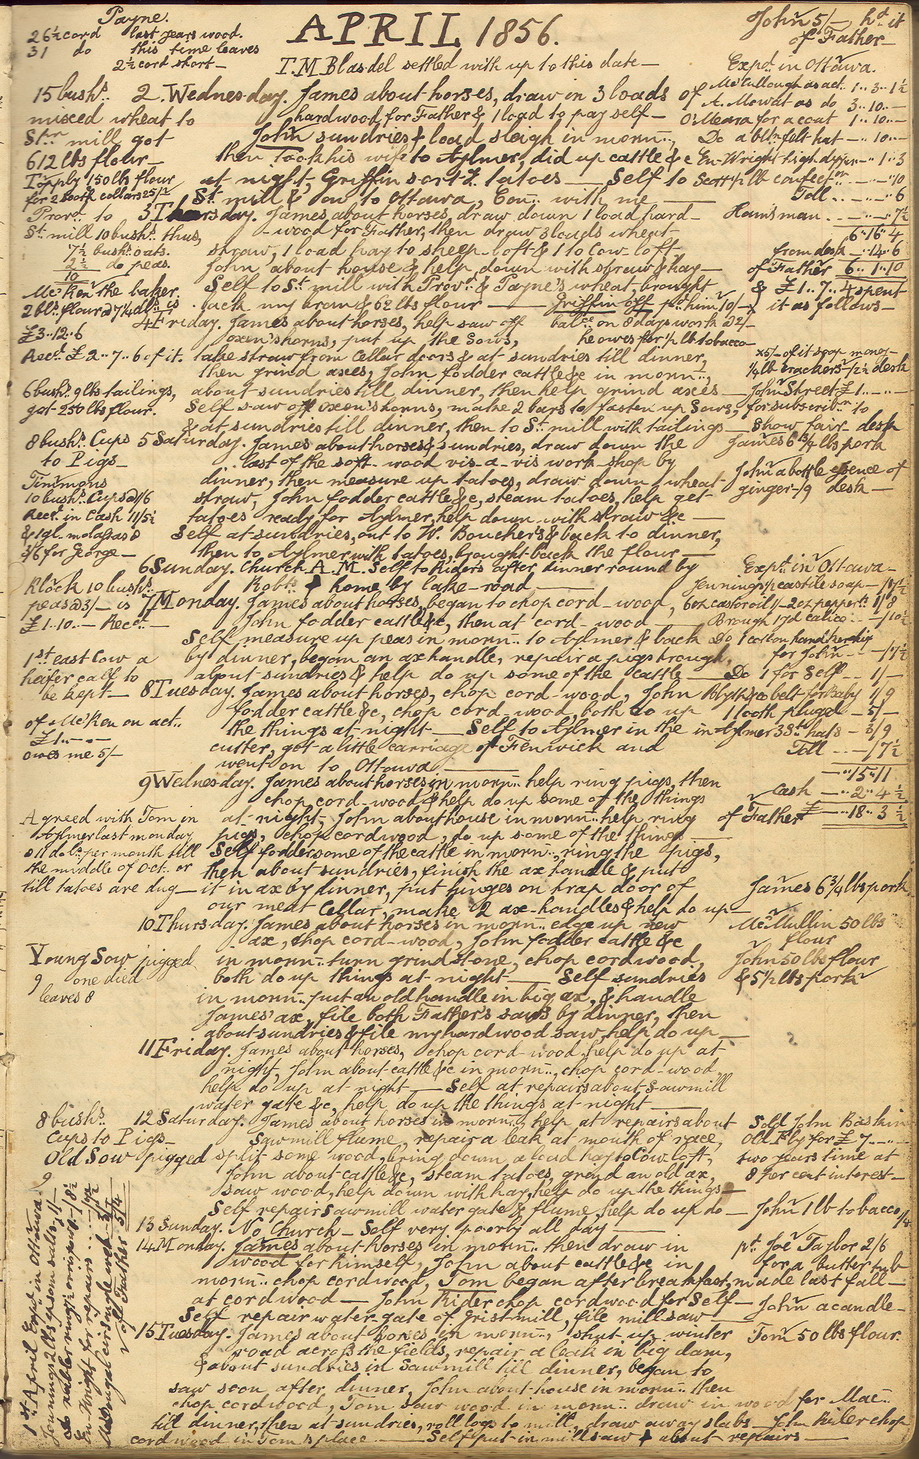 Payne.
26½ cord last years wood.
31 do this time leaves
2½ cord short —
APRIL 1856.
John 5/— hd it
of Father —
T.M Blasdel settled with up to this date —
Expt. in Ottawa.
15 bushs.
mixed wheat to
Str. mill got
612 lbs flour —
2. Wednesday. James about horses, draw in 3 loads of
hardwood, for Father & 1 load to pay self —
John sundries & load sleigh in morn..,
then took his wife to Aylmer, did up cattle &c
at night, Griffin sort P. tatoes — Self to
St. mill & tow, to Ottawa, with me —
McCullough as act.. 1..3..1½
A. Mowat as do 3..10..—
O'Meara for a coat 1..10..—
Do a bln felt hat —..10..—
Toll ..—..6
Hansman. —..—..7½
6..16..4
from desk —..14..6
of Father 6..1..10
& £1..7..4 spent
it as follows —
for 2 tooth collars 25/2
Provr. to
St. mill 10 bushs. thus,
7½ bush. oats.
2½ do peas.
10
3 Thursday. James about horses, draw down 1 load hard-
wood for Father, then draw 3 loads wheat-
straw, 1 load hay to sheep-loft & 1 to Cow-loft
John about house & help down with straw & hay —
Self to St. mill with Provr. & Payne's wheat, brought
back my bran & 62 lbs flour
Griffin off pt. him 10/—
balce. on 8 days work 22/—
he owes for ½ lb tobacco
McKen the baker.
£3..12..6
Rect. £2..7..6 of it.
4 Friday. James about horses, help saw off
oxen's horns, put up the Sows,
take straw from Cellar doors & at sundries till dinner,
then grind axes, John fodder cattle &c in morn..,
about sundries till dinner, then help grind axes —
Self saw off oxen's horns, make 2 bars to fasten up Sows,
& at sundries till dinner, then to St. mill with tailings —
6 bush. 9 lbs tailings,
got 250 lbs flour.
John Street £1..—..—
for subscribn to
Show fair desk
James 6¾ lbs pork
8 bush. Cups
to Pigs —
Timmons
10 bush. Cups @ 1/6
Rect. in Cash 11/5½
& 1 gl. molasses
3/6 for George —
5 Saturday. James about horses & sundries, draw down the
last of the soft-wood vis-a-vis work shop by
dinner, then measure up tatoes, draw down 1 wheat
straw, John fodder cattle &c, steam tatoes, help get
tatoes ready for Aylmer, help down with straw &c —
Self at sundries, out to W. Bouchers & back to dinner,
then to Aylmer with tatoes, brought back the flour —
John a bottle essence of
ginger -/9 desk —
6 Sunday. Church A.M. Self to Riders after dinner round by
Robts & home by lake-road
Klock 10 bushs.
peas @ 3/— is
£1..10..— Rect. —
7 Monday. James about horses, began to chop cord-wood,
John fodder cattle &c, then at cord-wood —
Self measure up peas in morn.. to Aylmer & back
by dinner, began an ax handle, repair a pigs trough,
about sundries & help do up some of the cattle —
Expt. in Ottawa —
Jennings ½ castile soap — /7½
6 oz castor oil /— 2 oz pepperts. 1/8
Brough 17 yd calico.. — /10½
Do 1 cotton handkerchg
for John — — /7½
Do 1 for Self — 1/—
1st. east Cow a
heifer calf to
be kept —
8 Tuesday. James about horses, chop cord-wood, John
fodder cattle &c, chop cord-wood, both do up
the things at night — Self to Aylmer in the
cutter, got a little carriage of Fenwick and
went on to Ottawa
belt for baby 1/9
1 tooth pluged — 5/—
in Aylmer 3 Sd. hats — 3/9
Toll .. — /7½
—..15..11
Cash —..2..4½
of Father £—..18..3½
of McKen on act..
£1..—..—
owes me 5/—
9 Wednesday. James about horses in morn.. help ring pigs, then
chop cord-wood & help do up some of the things
at night — John about house in morn.. help ring
pigs, chop cordwood, do up some of the things —
Self fodder some of the cattle in morn.., ring the pigs,
then about sundries, finish the ax handle & put
it in ax by dinner, put hinges on trap door of
our meat Cellar, make 2 ax-handles & help do up —
Agreed with Tom in
Aylmer last monday
@ 11 dols. per month till
the middle of Oct. or
till tatoes are dug —
James 6¾ lbs pork
10 Thursday. James about horses in morn.. edge up new
ax, chop cord-wood, John fodder cattle &c
in morn.. turn grindstone, chop cordwood,
both do up things at night — Self sundries
in morn.. put an old handle in big ax, & handle
James' ax, file both Father's saws by dinner, then
about sundries & file my hardwood saw, help do up —
McMullin 50 lbs
flour
John 50 lbs flour
& 5½ lbs pork
Young Sow pigged
9 one died
leaves 8
11 Friday. James about horses, chop cord-wood, help do up at
night, John about cattle &c in morn.., chop cord-wood,
help do up at night — Self at repairs about Sawmill
water gate &c, help do up the things at night —
8 bushs.
Cups to Pigs —
Old Sow pigged
9
12 Saturday. James about horses in morn.., help at repairs about
Sawmill flume, repair a leak at mouth of race,
split some wood, bring down a load hay to Cow loft,
John about cattle &c, steam tatoes, grind an old ax,
saw wood, help down with hay, help do up the things —
Self repair Sawmill water gate & flume, help do up do —
Sold John Baskin
Old Fly for £7..—..—
two years time at
8 per cent interest —
John 1 lb tobacco
13 Sunday. No Church — Self very poorly all day —
14 Monday. James about horses in morn.. then draw in
wood for himself, John about cattle &c, in
morn.. chop cordwood, Tom began after breakfast,
at cordwood — John Rider chop cordwood for Self —
Self repair water gate of Grist-mill, file mill saw —
pt. Joe Taylor 2/6
for a butter tub
made last fall —
John a candle —
15 Tuesday. James about horses in morn.., shut up winter
road across the fields, repair a leak in big dam,
& about sundries in Sawmill till dinner, began to
saw soon after dinner, John about house in morn.. then
chop cordwood, Tom saw wood in morn.. draw in wood for Mac..
till dinner, then at sundries, roll logs to mill, draw away slabs — John Rider chop
cordwood in Tom's place — Self put in mill saw & about repairs —
Tom 50 lbs flour.
1st April Expt. in Ottawa.
of Father 5/4